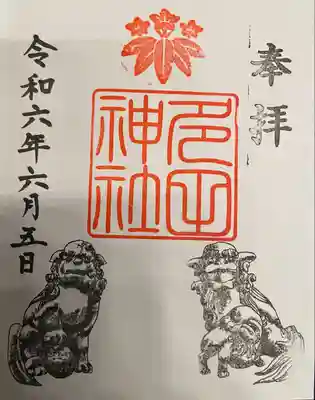 奉拝
多田
神社
令和六年六月五日